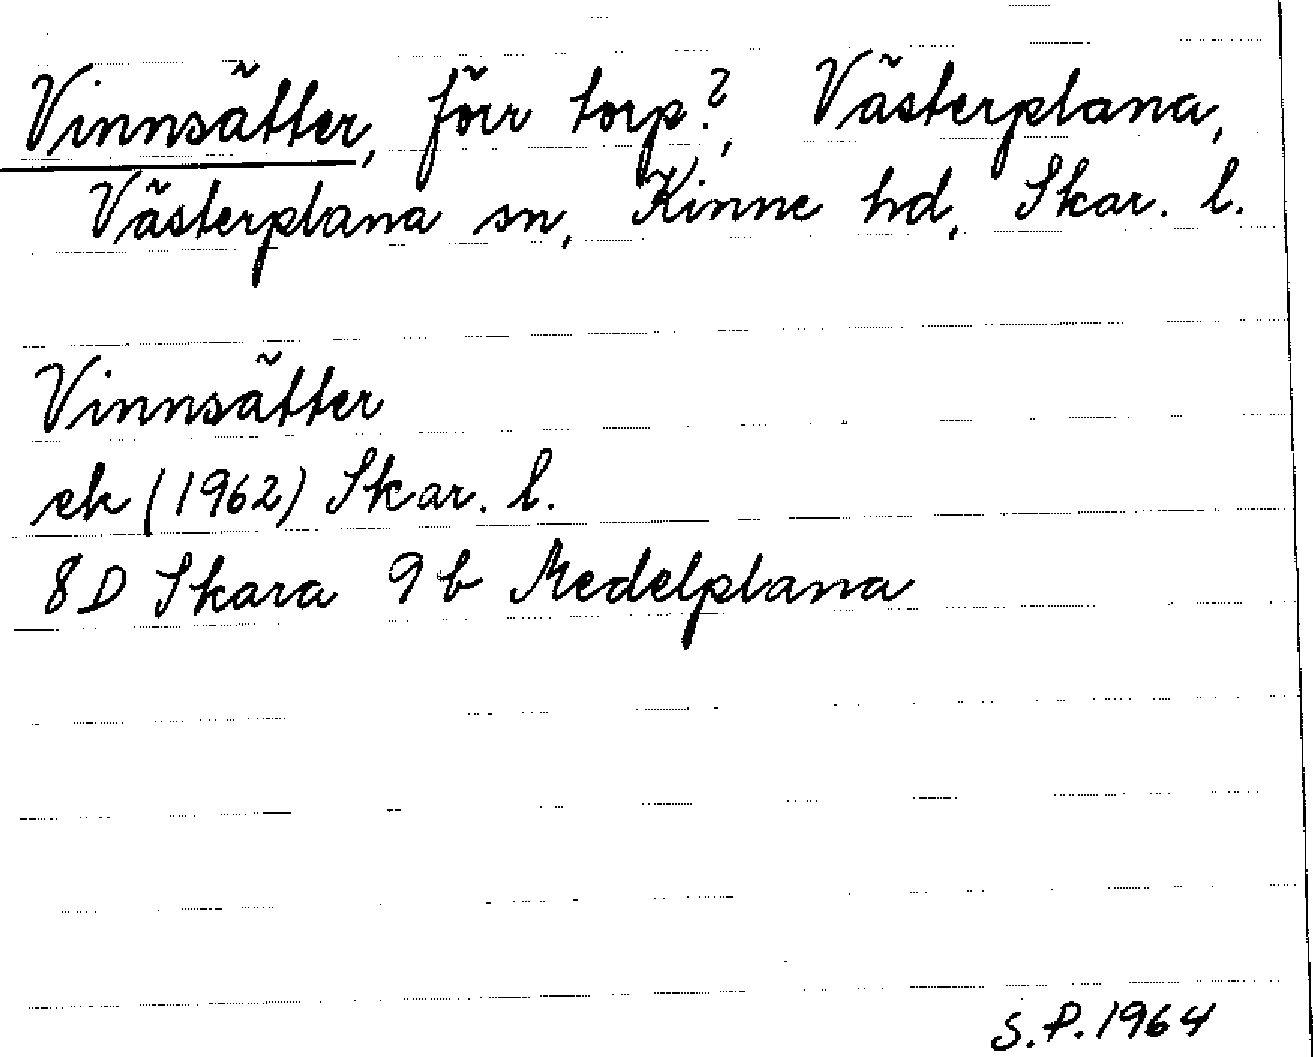 Vinnsätter, förr torp?, Västerplana,
Västerplana sn, Kinne hd, Skar. l.
Vinnsätter
ek (1962) Skar. l.
8D Skara 9b Medelplana
S.P.1964